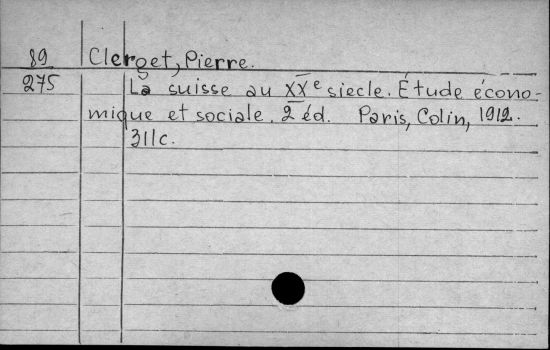 89 Clerget, Pierre.
275 La suisse au XXe siecle. Étude écono-
mique et sociale. 2 éd. Paris, Colin, 1912.
311c.